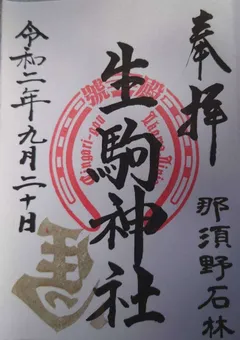 奉拝
那須野石林
生駒神社
令和二年九月二十日
馬